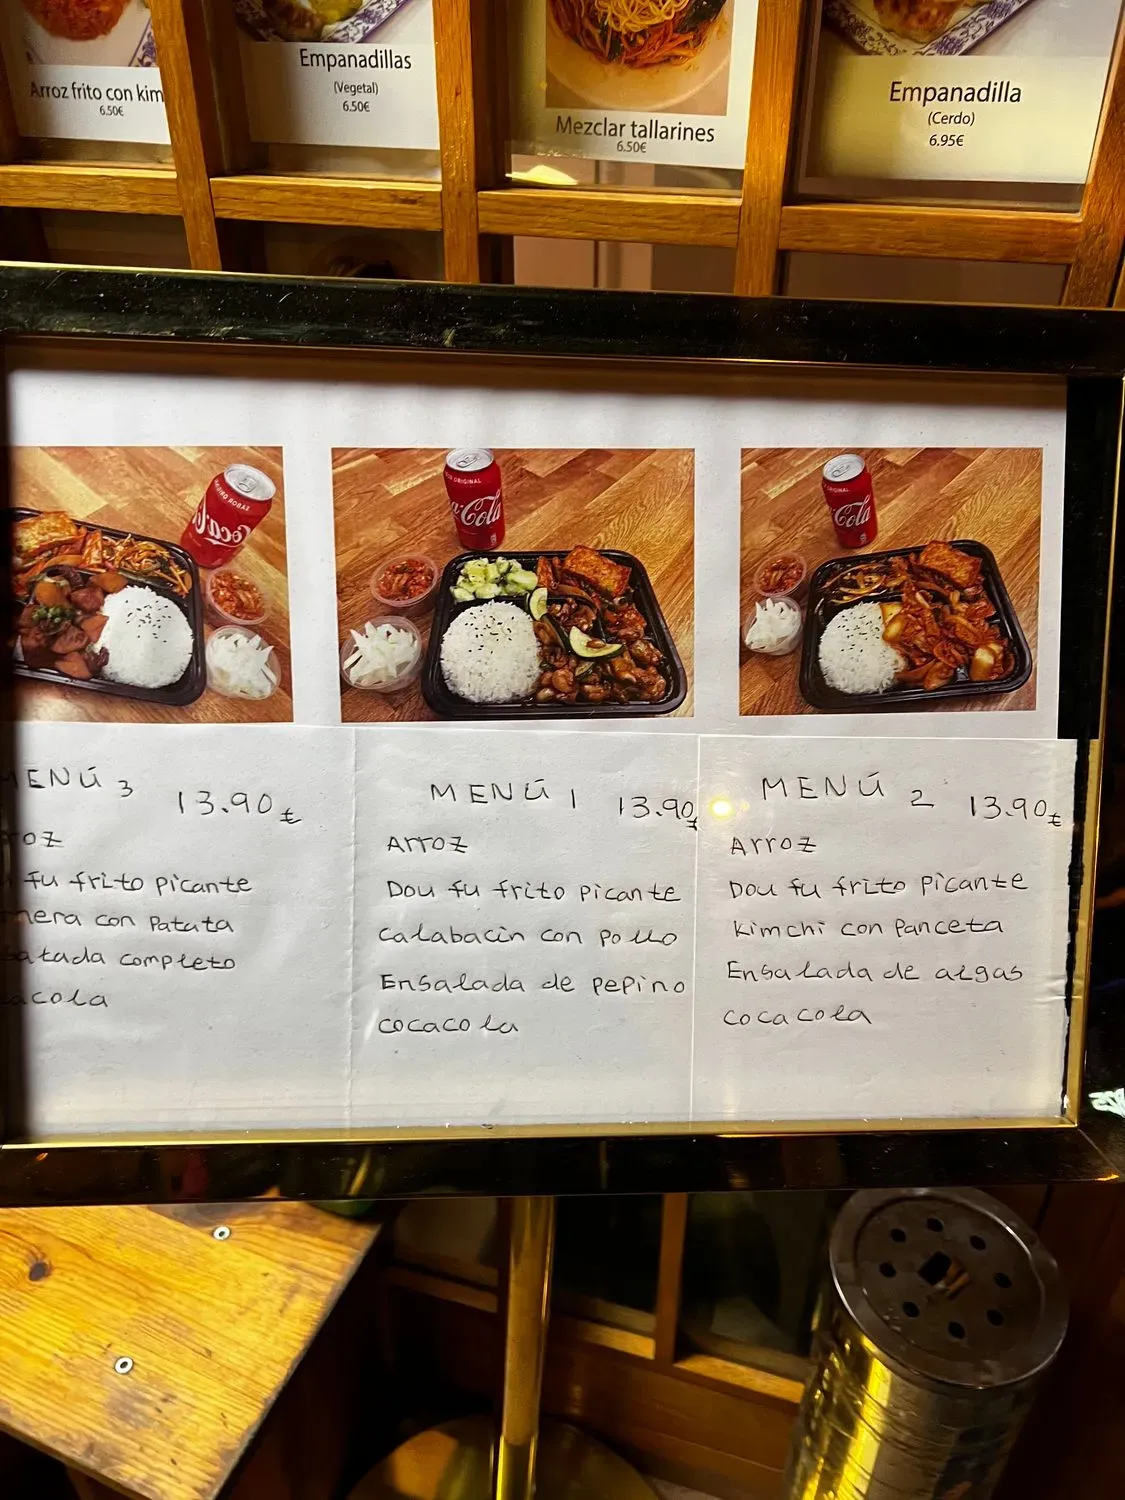 Arroz frito con kim
6.50€
Empanadillas
(Vegetal)
6.50€
Mezclar tallarines
6.50€
Empanadilla
(Cerdo)
6,95€
Coca-Cola
ORIGINAL
Coca-Cola
ORIGINAL
Coca-Cola
MENÚ 3 13.90€
roz
fu frito picante
nera con Patata
atada completo
acola
MENÚ 1 13.90€
Arroz
Dou fu frito picante
calabacin con pollo
Ensalada de pepino
cocacola
MENÚ 2 13.90€
Arroz
Dou fu frito picante
kimchi con panceta
Ensalada de algas
cocacola